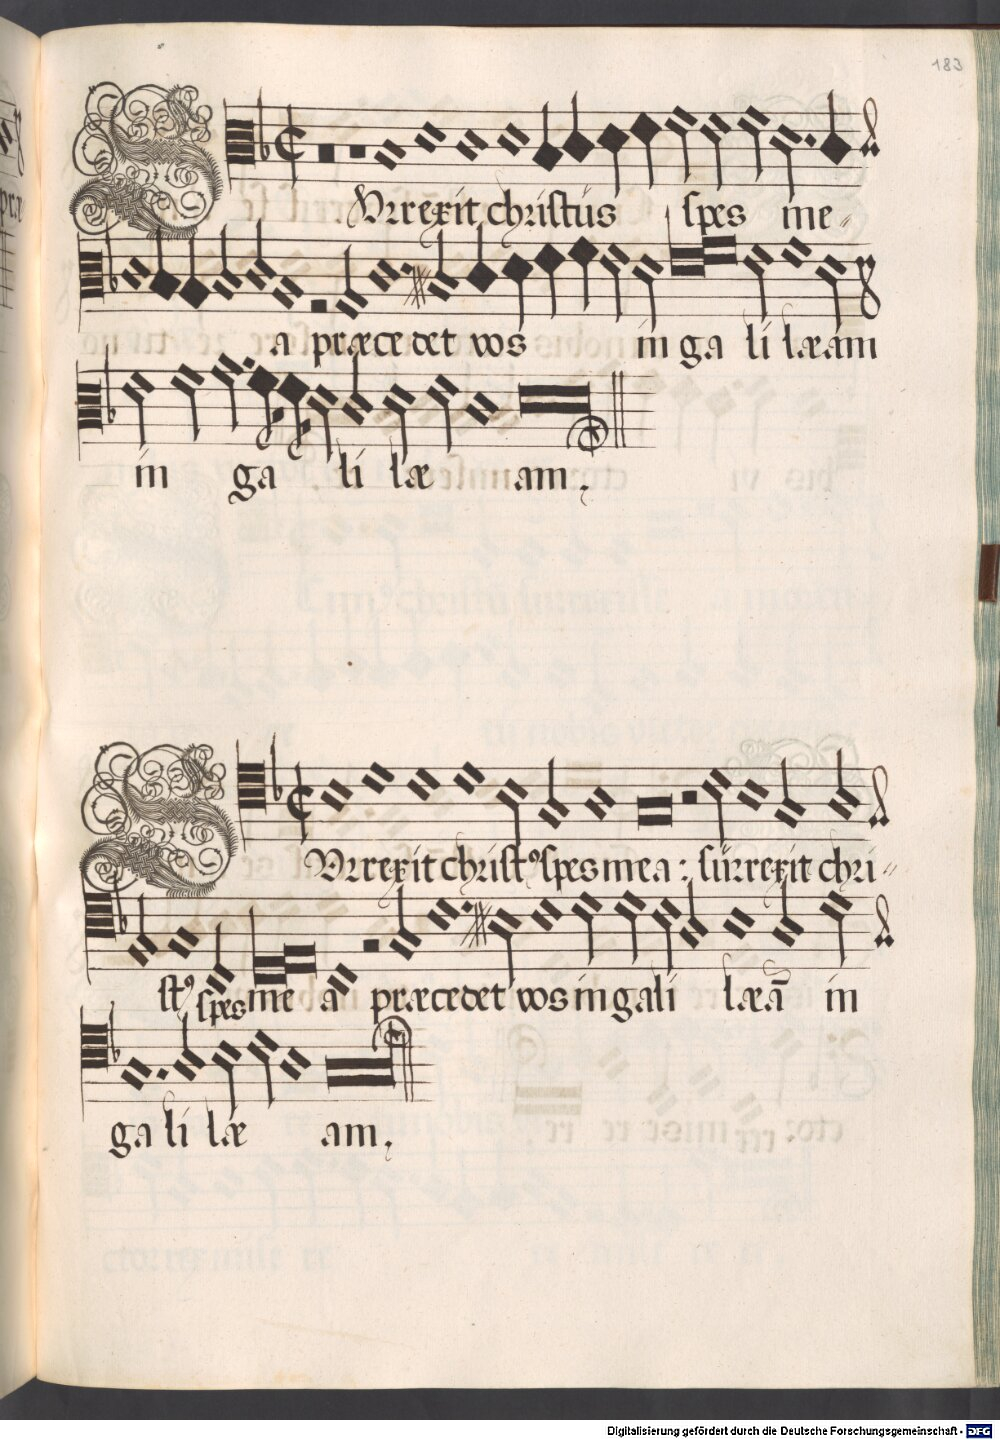 183
Surrexit christus spes me-
a præcedet vos in ga li læam
in ga li læ am.
Surrexit christꝰ spes mea : surrexit chri-
stꝰ spes me a præcedet vos in gali læā in
ga li læ am.
Digitalisierung gefördert durch die Deutsche Forschungsgemeinschaft - DFG